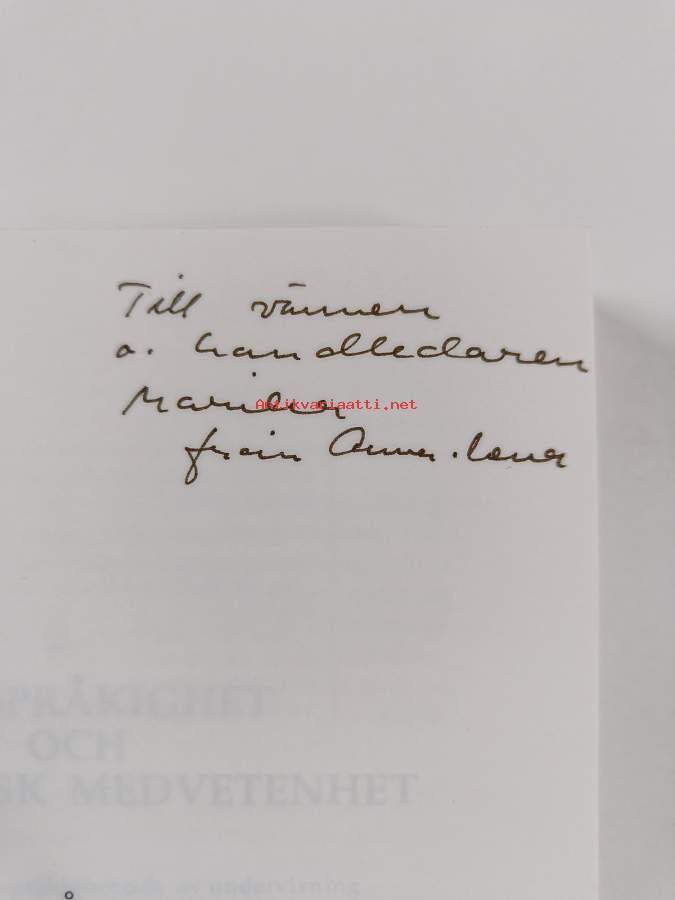 Till vännen
o. handledaren
Marika
Antikvariaatti.net
från Anna-Lena
SPRÅKIGHET
OCH
SK MEDVETENHET
undervisning